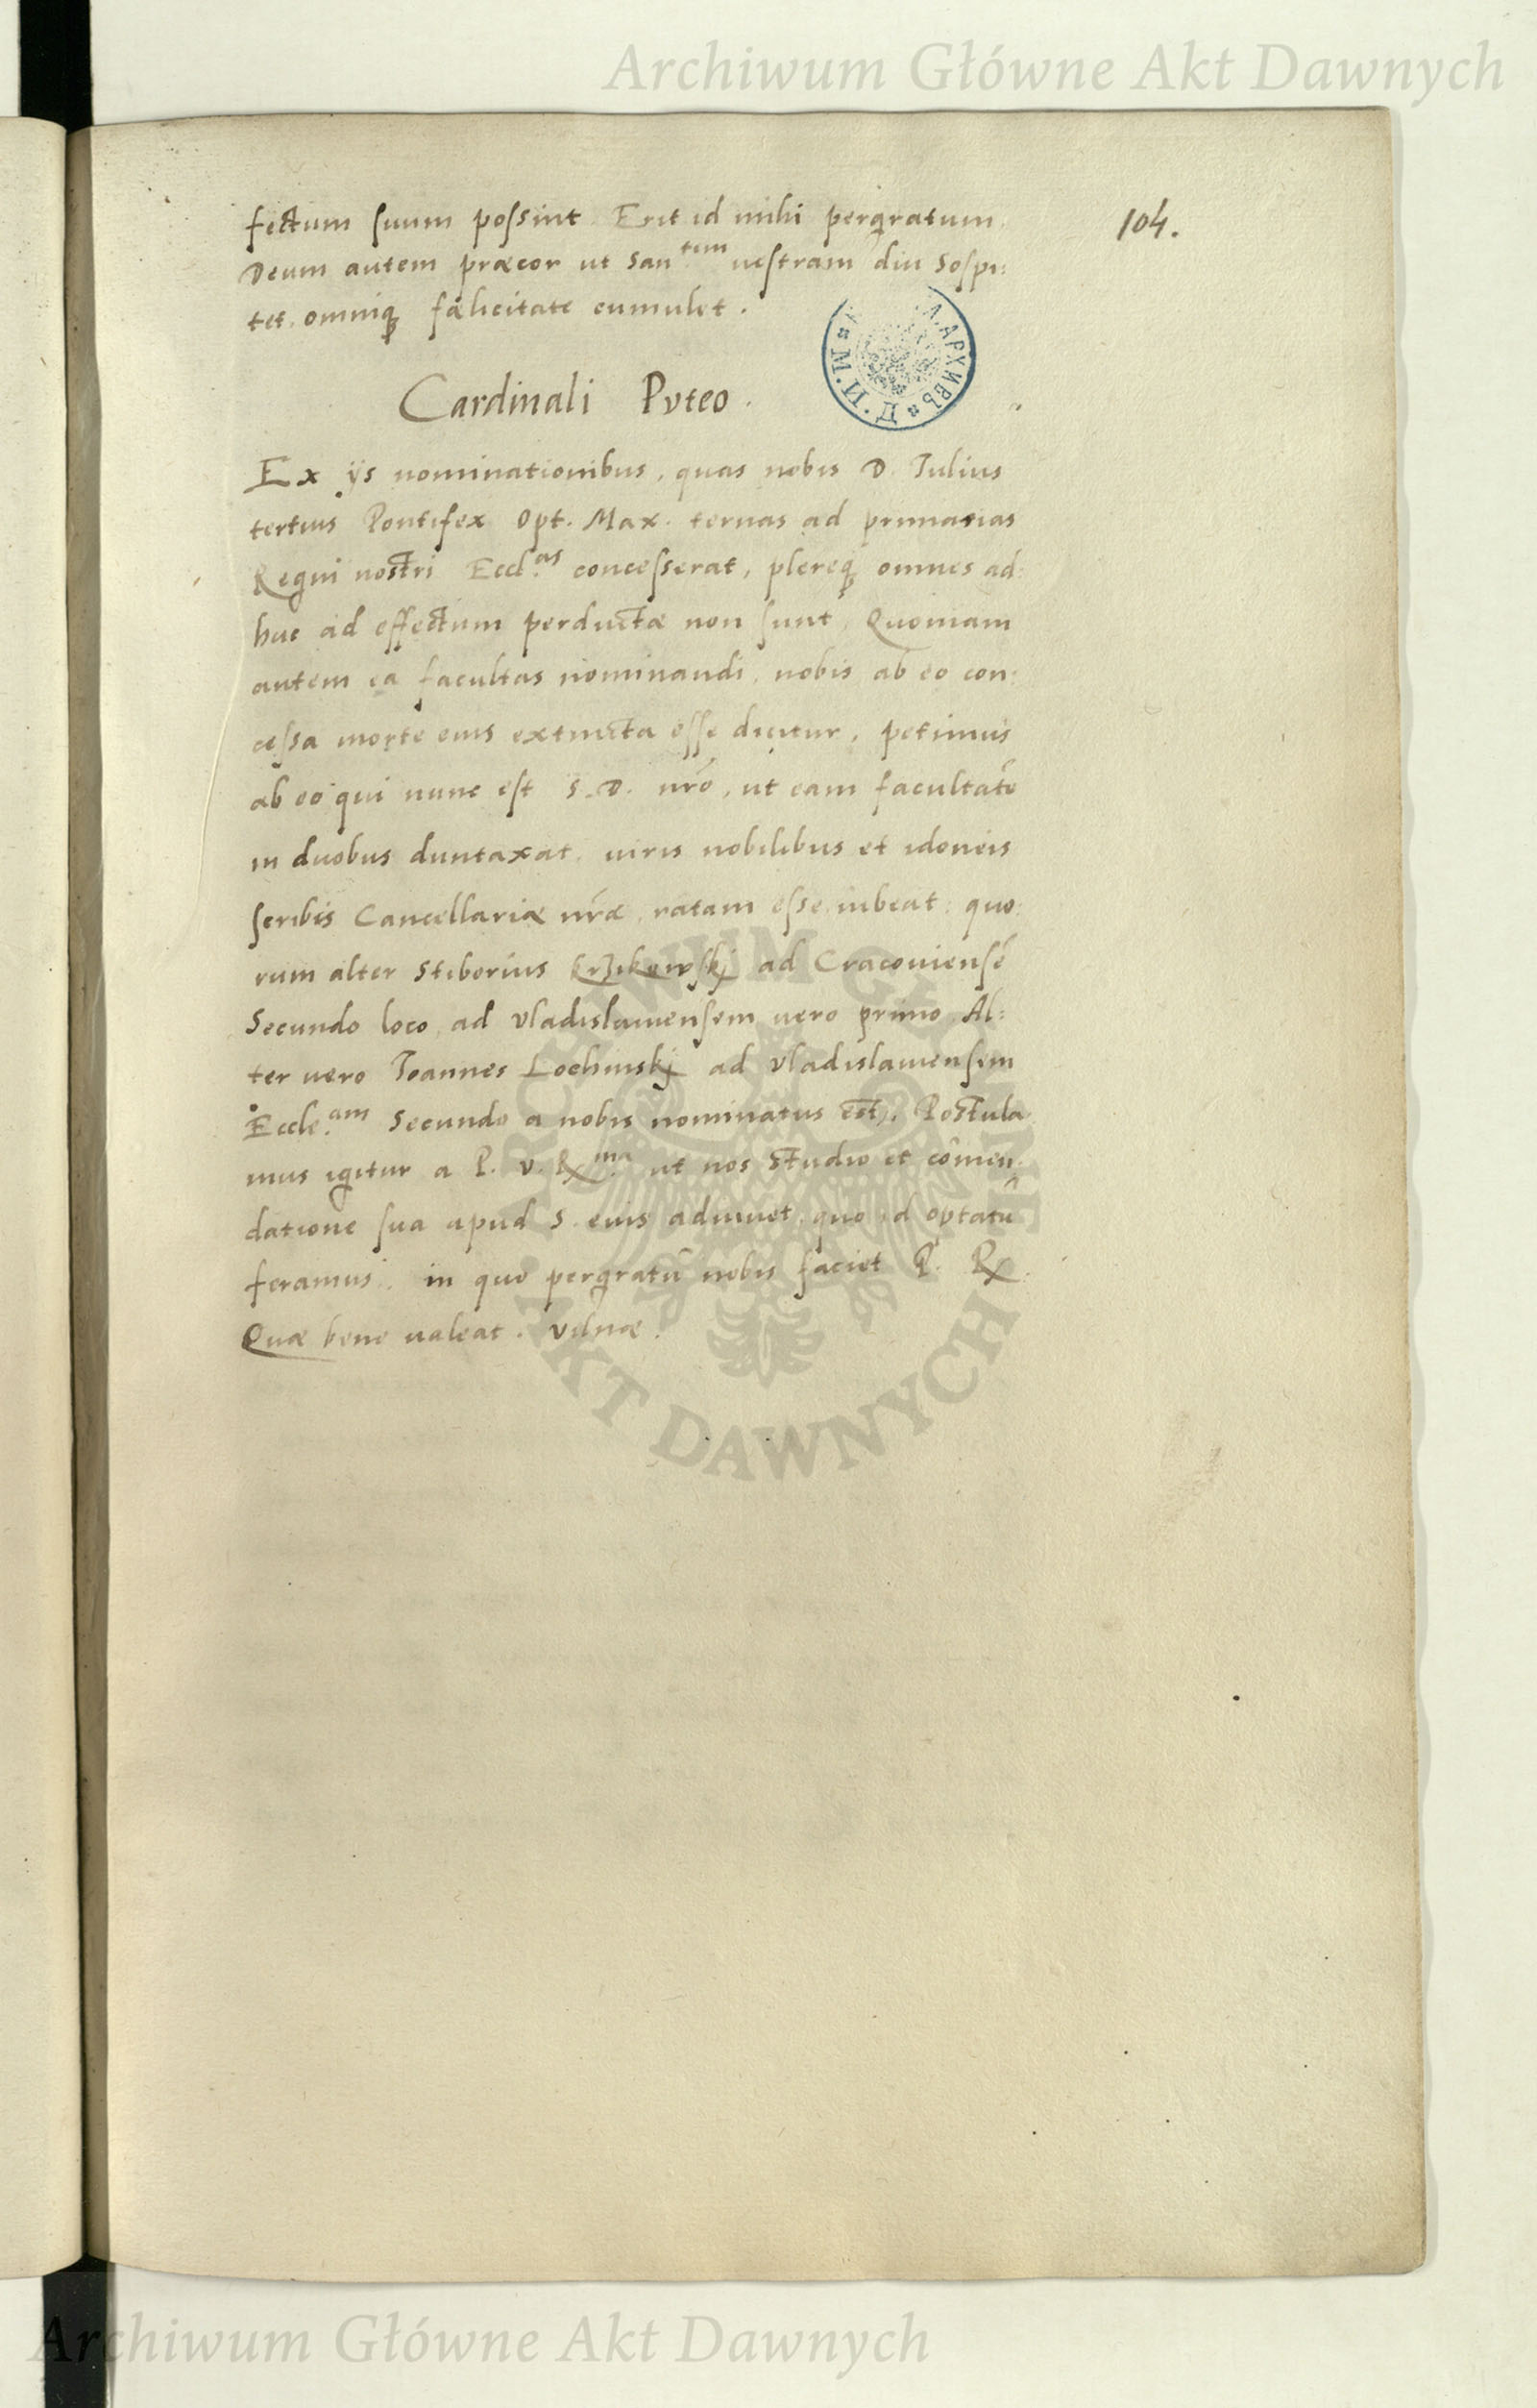 Archiwum Główne Akt Dawnych
104.
fectum suum possint. Erit id mihi pergratum.
Deum autem præcor ut San^tem vestram diu sospi:
tet, omniq₃ fælicitate cumulet.
Л. АРХИВЪ * Д. И. И. *
Cardinali Puteo.
Ex ijs nominationibus, quas nobis D. Julius
tertius Pontifex Opt. Max. ternas ad primarias
Regni nostri Eccl.^as concesserat, plereq₃ omnes ad:
huc ad effectum perductæ non sunt. Quoniam
autem ea facultas nominandi, nobis ab eo con:
cessa morte eius extincta esse dicitur, petimus
ab eo qui nunc est S. D. nr̃o, ut eam facultatẽ
in duobus duntaxat, viris nobilibus et idoneis
scribis Cancellariæ nr̃æ, ratam esse iubeat: quo:
rum alter Stiborius Krzikowskj ad Cracoviensẽ
Secundo loco, ad Vladislauiensem vero primo. Al:
ter vero Joannes Lochinskj ad Vladislauiensem
Eccle.^am Secundo a nobis nominatus est. Postula
mus igitur a P. V. R^ma ut nos studio et com̃en:
datione sua apud S. eius adiuvet, quo id optatũ
feramus. in quo pergratũ nobis faciet P. R.
Quæ bene valeat. Vilnæ.
ARCHIWUM GŁÓWNE
AKT DAWNYCH
Archiwum Główne Akt Dawnych